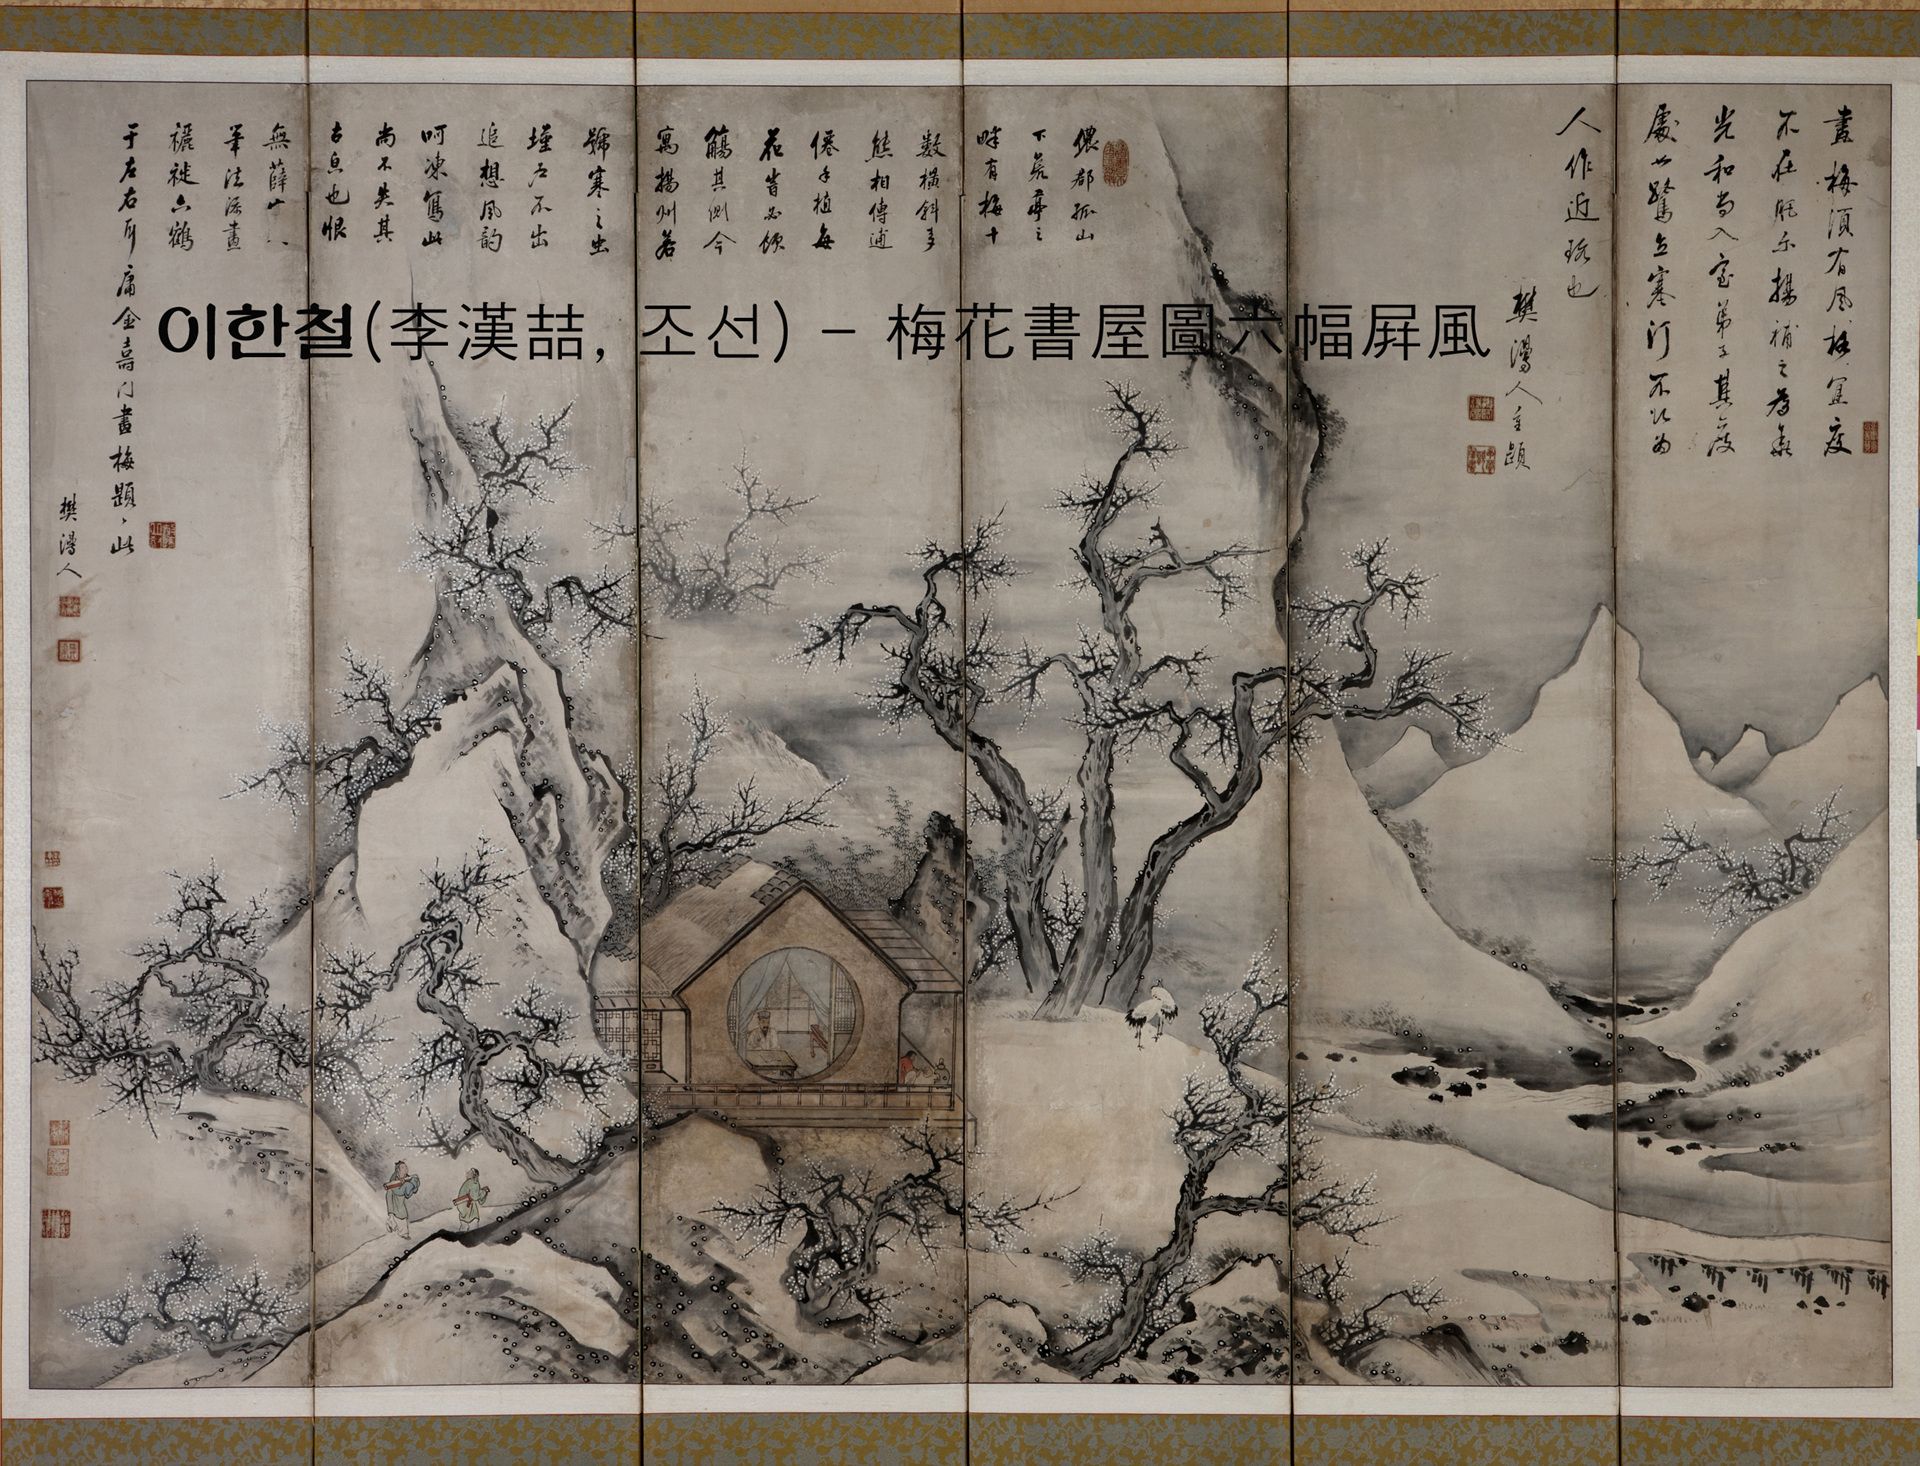 이한철(李漢喆, 조선) – 梅花書屋圖六幅屛風
畫梅須有風格宜瘦
不在肥尔揚補之為華
光和尚入室弟子其瘦
處如鷺立寒汀不欲為
人作近玩也
樊漫人題
儂鄰孤山
下亭之
畔有梅十
數橫斜多
態相傳逋
僊手植每
花旹必傾
觴其側今
寓揚州若
號寒之虫
墐戶不出
追想風韵
呵凍寫此
尚不失其
古意也恨
無薛少
筆法添畫
褵褷六鶴
于左右耳庸金壽門畫梅題題此
樊漫人